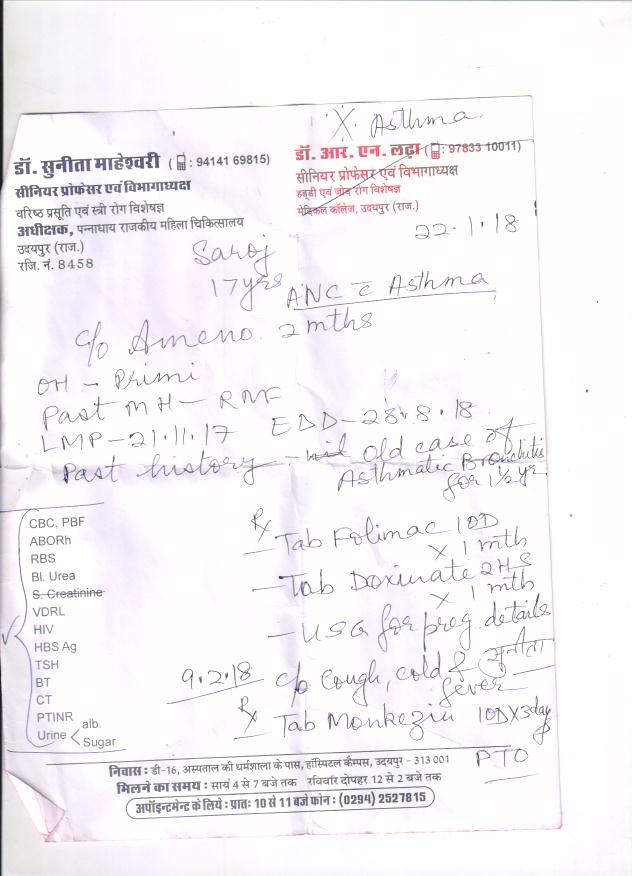 X Asthma
डॉ. सुनीता माहेश्वरी ( : 94141 69815)
सीनियर प्रोफेसर एवं विभागाध्यक्ष
वरिष्ठ प्रसूति एवं स्त्री रोग विशेषज्ञ
अधीक्षक, पन्नाधाय राजकीय महिला चिकित्सालय
उदयपुर (राज.)
रजि. नं. 8458
डॉ. आर. एन. लढ़ा ( : 97833 10011)
सीनियर प्रोफेसर एवं विभागाध्यक्ष
हड्डी एवं जोड़ रोग विशेषज्ञ
मेडिकल कॉलेज, उदयपुर (राज.)
22.1.18
Saroj
17yrs
ANC c̄ Asthma
c/o Ameno. 2 mths
OH - Primi
Past MH - RMF
LMP - 21.11.17 EDD - 28.8.18
Past history - nil old case of
Asthmatic Bronchitis
for 1½ yr
CBC, PBF
ABORh
RBS
Bl. Urea
S. Creatinine
VDRL
HIV
HBS Ag
TSH
BT
CT
PTINR
Urine < alb.
Sugar
Rx
- Tab Folimac 1OD
X 1 mth
- Tab Doxinate 2HS
X 1 mth
- USG for preg. details
सुनीता
9.2.18 c/o Cough, cold &
fever
Rx
Tab 1OD X 3days
PTO
निवास : डी-16, अस्पताल की धर्मशाला के पास, हॉस्पिटल कैम्पस, उदयपुर - 313 001
मिलने का समय : सायं 4 से 7 बजे तक रविवार दोपहर 12 से 2 बजे तक
अपॉइन्टमेन्ट के लिये : प्रातः 10 से 11 बजे फोन : (0294) 2527815